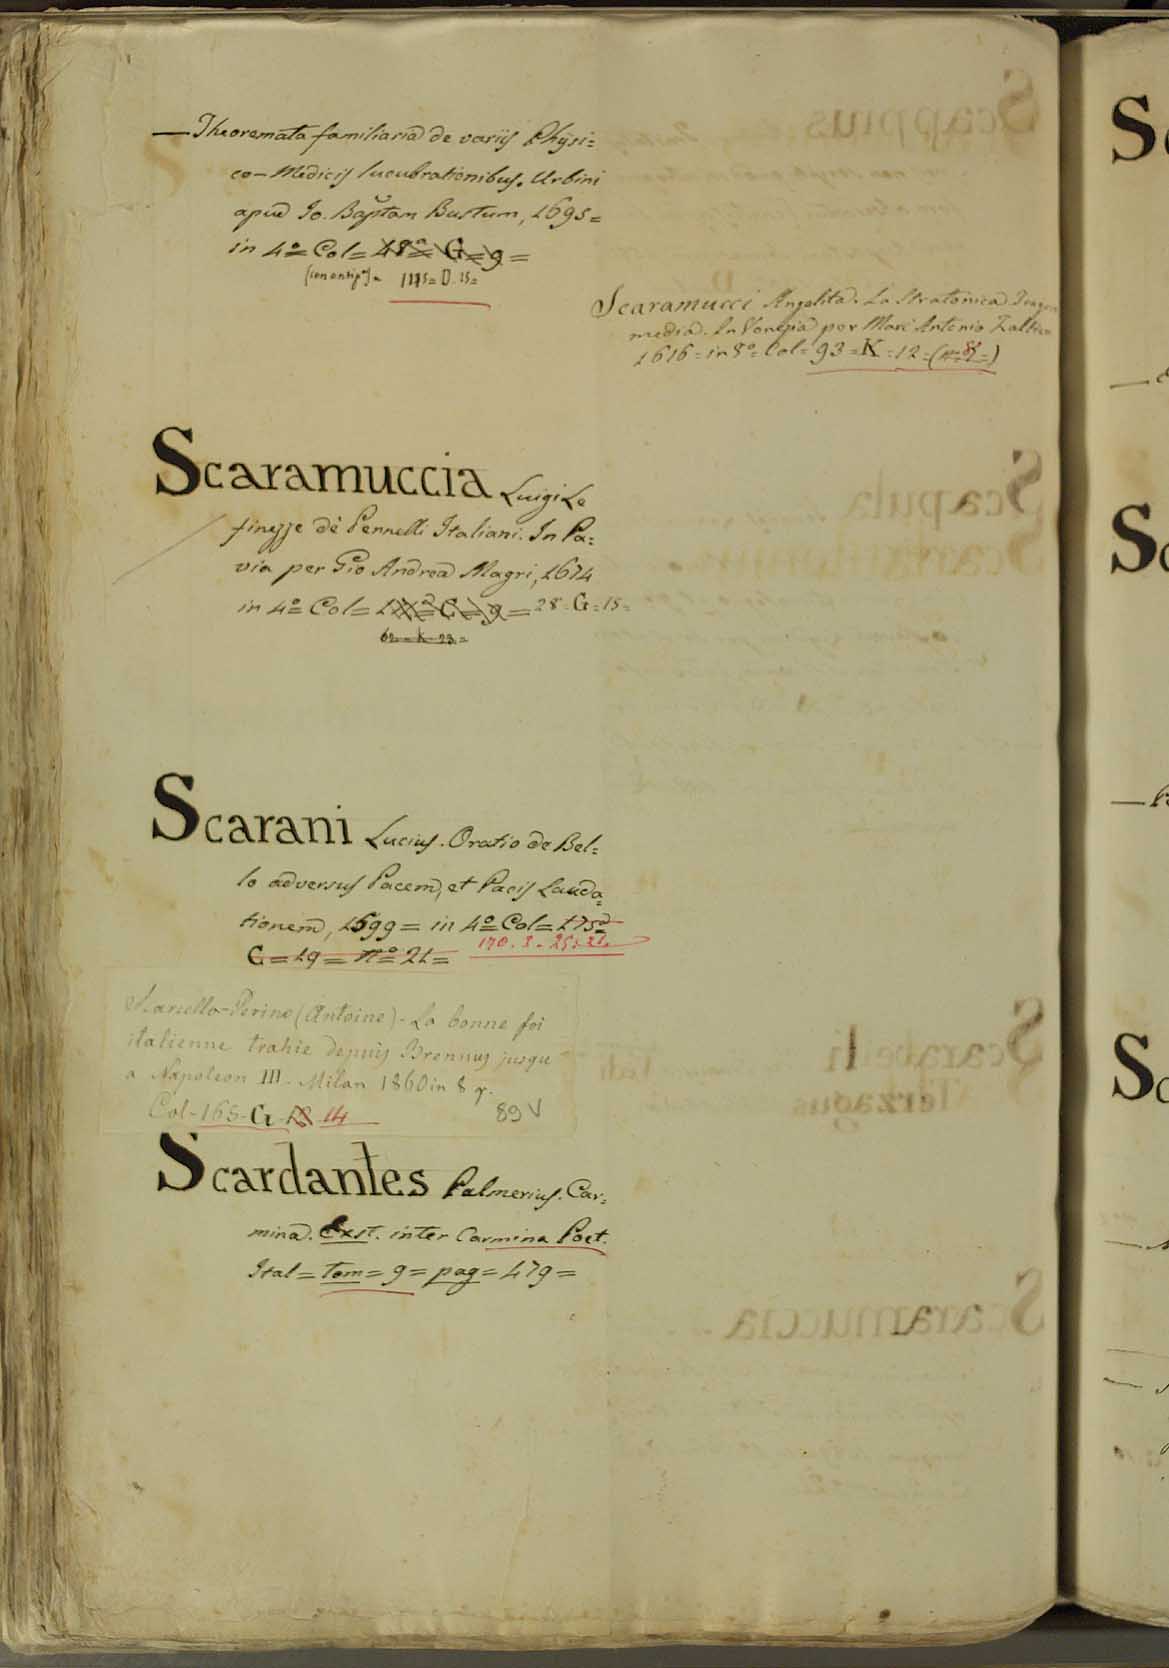 — Theoremata familiaria de variis Physi=
co-Medicis lucubrationibus. Urbini
apud Io. Baptam Bustum, 1695=
in 4º= Col= 48ª= G= 9 =
1175= D. 15=
Scaramucci Angelita. La Stratonica Trago
media. In Venezia per Marc Antonio Zaltieri
1616= in 8º= Col= 93 = K = 12 =
Scaramuccia Luigi Le
finezze dè Pennelli Italiani. In Pa=
via per Gio Andrea Magri, 1674
in 4º= Col= = G = 9 = 28= G= 15=
62= K 23=
Scarani Lucius. Oratio de Bel=
lo adversus Pacem, et Pacis Lauda=
tionem, 1599= in 4º= Col= 175ª
G= 19= nº= 21=
170. 3. 25: 21.
Scarcello-Perino (Antoine) - La bonne foi
italienne trahie depuis Brennus jusqu
a Napoleon III - Milan 1860 in 8
Col- 165- G - 14
89 V
Scardantes Palmerius. Car=
mina. Exst. inter Carmina Poet.
Ital= tom= 9= pag= 479=